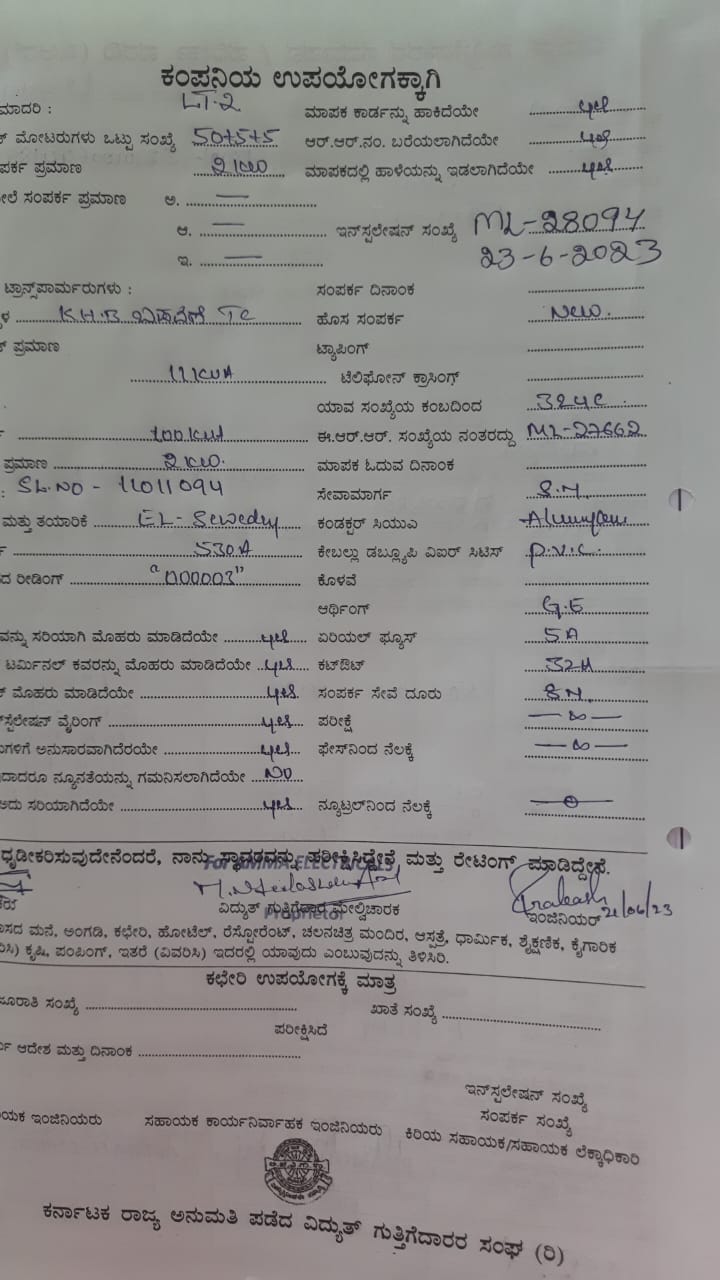 ಕಂಪನಿಯ ಉಪಯೋಗಕ್ಕಾಗಿ
ಮಾದರಿ : LT-2 ಮಾಪಕ ಕಾರ್ಡನ್ನು ಹಾಕಿದೆಯೇ yes
ಮೋಟರುಗಳು ಒಟ್ಟು ಸಂಖ್ಯೆ 50+5+5 ಆರ್.ಆರ್.ನಂ. ಬರೆಯಲಾಗಿದೆಯೇ yes
ಪರ್ಕ ಪ್ರಮಾಣ 2 KW ಮಾಪಕದಲ್ಲಿ ಹಾಳೆಯನ್ನು ಇಡಲಾಗಿದೆಯೇ yes
ಲೆ ಸಂಪರ್ಕ ಪ್ರಮಾಣ ಅ. —
ಆ. — ಇನ್‌ಸ್ಟಲೇಷನ್ ಸಂಖ್ಯೆ ML-28094
ಇ. — 23-6-2023
ಟ್ರಾನ್ಸ್‌ಪಾರ್ಮರುಗಳು : ಸಂಪರ್ಕ ದಿನಾಂಕ
ಳ K.H.B TC ಹೊಸ ಸಂಪರ್ಕ New.
ಪ್ರಮಾಣ ಟ್ಯಾಪಿಂಗ್
11 KVA ಟೆಲಿಫೋನ್ ಕ್ರಾಸಿಂಗ್
ಯಾವ ಸಂಖ್ಯೆಯ ಕಂಬದಿಂದ
100 KVA ಈ.ಆರ್.ಆರ್. ಸಂಖ್ಯೆಯ ನಂತರದ್ದು ML-27662
ಪ್ರಮಾಣ 2 KW. ಮಾಪಕ ಓದುವ ದಿನಾಂಕ
: SL.NO - 11011094 ಸೇವಾಮಾರ್ಗ S.N.
ಮತ್ತು ತಯಾರಿಕೆ EL-Sewedy ಕಂಡಕ್ಟರ್ ಸಿಯುಎ
530A ಕೇಬಲ್ಲು ಡಬ್ಲ್ಯೂಪಿ ವಿಐರ್ ಸಿಟಿಸ್ P.V.C.
ದ ರೀಡಿಂಗ್ "000003" ಕೊಳವೆ
ಆರ್ಥಿಂಗ್ G.E
ವನ್ನು ಸರಿಯಾಗಿ ಮೊಹರು ಮಾಡಿದೆಯೇ yes ಏರಿಯಲ್ ಫ್ಯೂಸ್ 5A
ಟರ್ಮಿನಲ್ ಕವರನ್ನು ಮೊಹರು ಮಾಡಿದೆಯೇ yes ಕಟ್‌ಔಟ್ 32A
ಮೊಹರು ಮಾಡಿದೆಯೇ yes ಸಂಪರ್ಕ ಸೇವೆ ದೂರು 8N.
ಸ್ಟಲೇಷನ್ ವೈರಿಂಗ್ yes ಪರೀಕ್ಷೆ —∞—
ಗಳಿಗೆ ಅನುಸಾರವಾಗಿದೆರಯೇ yes ಫೇಸ್‌ನಿಂದ ನೆಲಕ್ಕೆ —∞—
ದಾದರೂ ನ್ಯೂನತೆಯನ್ನು ಗಮನಿಸಲಾಗಿದೆಯೇ No
ಅದು ಸರಿಯಾಗಿದೆಯೇ yes ನ್ಯೂಟ್ರಲ್‌ನಿಂದ ನೆಲಕ್ಕೆ
ಧೃಡೀಕರಿಸುವುದೇನೆಂದರೆ, ನಾನು ಸ್ಥಾವರವನ್ನು ಪರೀಕ್ಷಿಸಿದ್ದೇನೆ ಮತ್ತು ರೇಟಿಂಗ್ ಮಾಡಿದ್ದೇನೆ.
ವಿದ್ಯುತ್ ಗುತ್ತಿಗೆದಾರ ಮೇಲ್ವಿಚಾರಕ ಇಂಜಿನಿಯರ್ 21/06/23
Proprietor
ಸದ ಮನೆ, ಅಂಗಡಿ, ಕಛೇರಿ, ಹೋಟೆಲ್, ರೆಸ್ಟೋರೆಂಟ್, ಚಲನಚಿತ್ರ ಮಂದಿರ, ಆಸ್ಪತ್ರೆ, ಧಾರ್ಮಿಕ, ಶೈಕ್ಷಣಿಕ, ಕೈಗಾರಿಕ
ರಿಸಿ) ಕೃಷಿ, ಪಂಪಿಂಗ್, ಇತರೆ (ವಿವರಿಸಿ) ಇದರಲ್ಲಿ ಯಾವುದು ಎಂಬುವುದನ್ನು ತಿಳಿಸಿರಿ.
ಕಛೇರಿ ಉಪಯೋಗಕ್ಕೆ ಮಾತ್ರ
ಜೂರಾತಿ ಸಂಖ್ಯೆ ಖಾತೆ ಸಂಖ್ಯೆ
ಪರೀಕ್ಷಿಸಿದೆ
ಆದೇಶ ಮತ್ತು ದಿನಾಂಕ
ಇನ್‌ಸ್ಟಲೇಷನ್ ಸಂಖ್ಯೆ
ಸಂಪರ್ಕ ಸಂಖ್ಯೆ
ಯಕ ಇಂಜಿನಿಯರು ಸಹಾಯಕ ಕಾರ್ಯನಿರ್ವಾಹಕ ಇಂಜಿನಿಯರು ಕಿರಿಯ ಸಹಾಯಕ/ಸಹಾಯಕ ಲೆಕ್ಕಾಧಿಕಾರಿ
ಕರ್ನಾಟಕ ರಾಜ್ಯ ಅನುಮತಿ ಪಡೆದ ವಿದ್ಯುತ್ ಗುತ್ತಿಗೆದಾರರ ಸಂಘ (ರಿ)